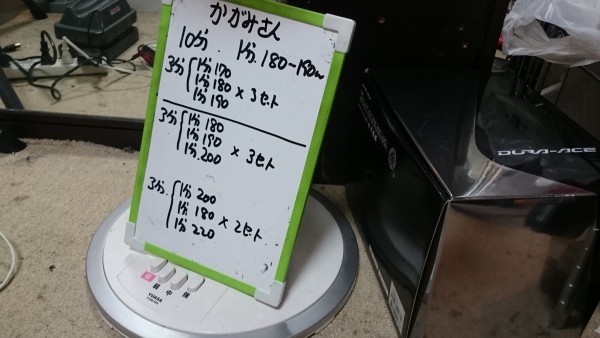 かがみさん
10分. 1分. 180-190w
3分 1分 170
1分 180 × 3セット
1分 190
3分 1分 180
1分 190
1分. 200 × 3セット
3分. 1分. 200
1分. 180 × 2セット
1分 220
切 弱 中 強
YUASA
DURA-ACE